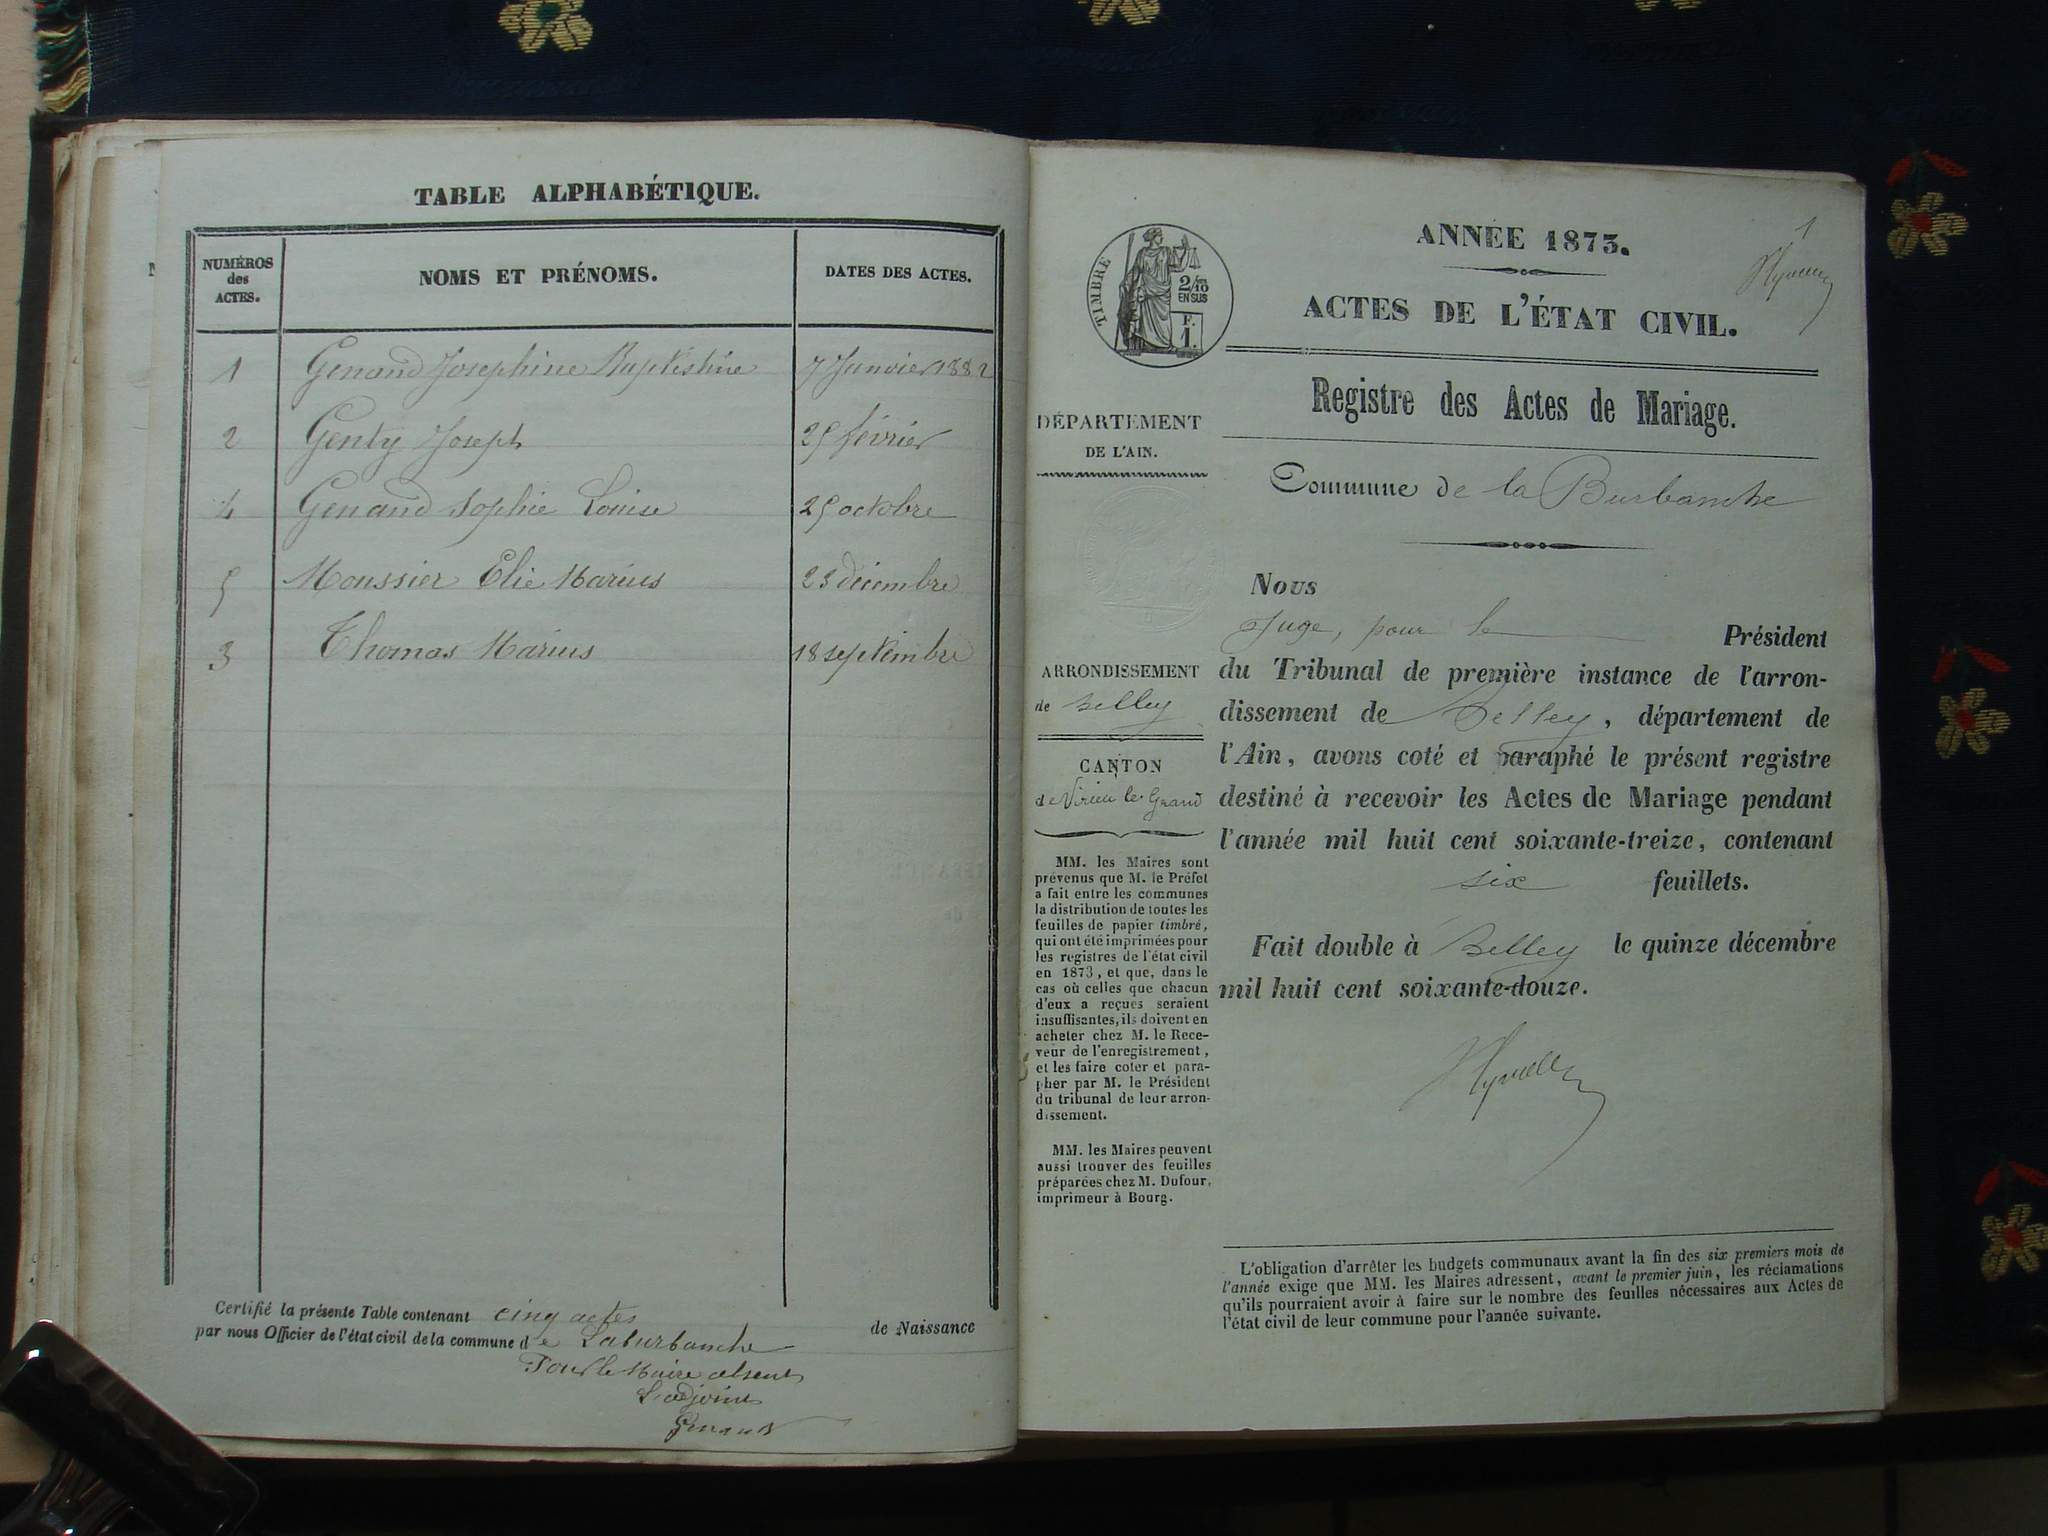 TABLE ALPHABÉTIQUE.
NUMÉROS des ACTES. NOMS ET PRÉNOMS. DATES DES ACTES.
1 Genand Josephine Baptistine 7 Janvier 1882
2 Genty Joseph 25 février
4 Genand Sophie Louise 25 octobre
5 Moussier Elie Marius 23 décembre
3 Thomas Marius 18 septembre
Certifié la présente Table contenant cinq actes de Naissance
par nous Officier de l'état civil de la commune de Laburbanche
Pour le Maire absent
L'adjoint
Genand
1
ANNÉE 1873.
ACTES DE L'ÉTAT CIVIL.
TIMBRE
2/10
EN SUS
F.
1.
Registre des Actes de Mariage.
DÉPARTEMENT
DE L'AIN.
Commune de la Burbanche
ARRONDISSEMENT
de Belley
CANTON
de Virieu le Grand
MM. les Maires sont
prévenus que M. le Préfet
a fait entre les communes
la distribution de toutes les
feuilles de papier timbré,
qui ont été imprimées pour
les registres de l'état civil
en 1873, et que, dans le
cas où celles que chacun
d'eux a reçues seraient
insuffisantes, ils doivent en
acheter chez M. le Rece-
veur de l'enregistrement,
et les faire coter et para-
pher par M. le Président
du tribunal de leur arron-
dissement.
MM. les Maires peuvent
aussi trouver des feuilles
préparées chez M. Dufour,
imprimeur à Bourg.
Nous
Juge, pour le Président
du Tribunal de première instance de l'arron-
dissement de Belley, département de
l'Ain, avons coté et paraphé le présent registre
destiné à recevoir les Actes de Mariage pendant
l'année mil huit cent soixante-treize, contenant
six feuillets.
Fait double à Belley le quinze décembre
mil huit cent soixante-douze.
L'obligation d'arrêter les budgets communaux avant la fin des six premiers mois de
l'année exige que MM. les Maires adressent, avant le premier juin, les réclamations
qu'ils pourraient avoir à faire sur le nombre des feuilles nécessaires aux Actes de
l'état civil de leur commune pour l'année suivante.